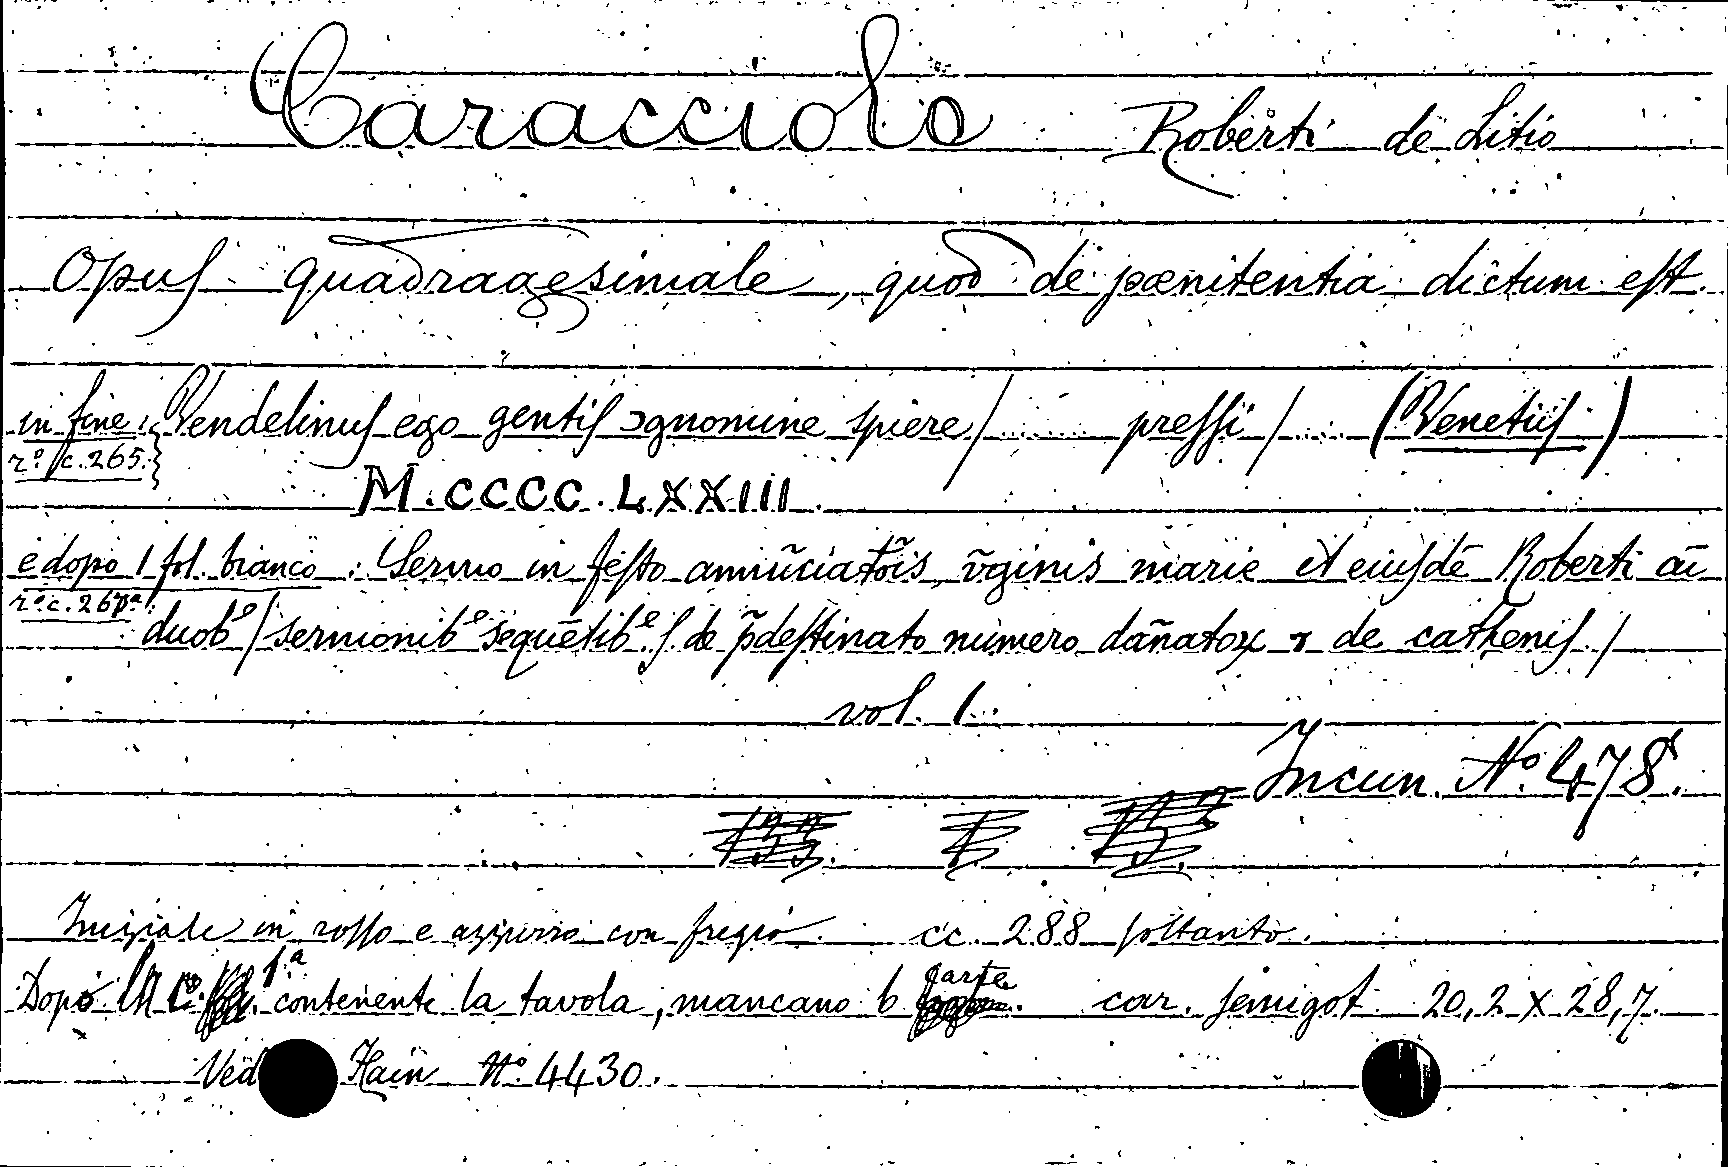 Caracciolo Roberti de Litio
Opuſ quadragesimale, quod de pœnitentia dictum eſt.
in fine: Vendelinuſ ego gentiſ ɔgnomine spiere/ ...... preſſi / .... (Venetiiſ.)
rº. c. 265.
M.CCCC.LXXIII.
e dopo 1 fol. bianco: Sermo in feſto annũciatõis, ṽginis marie et eiuſdē Roberti cũ
rº c. 267ª.
duobꝰ/sermonibꝰ sequētibꝰ. ſ. de p̃deſtinato numero dãnatoꝝ ⁊ de catheniſ /
vol. 1.
Incun. Nº 478.
Iniziale in roſſo e azzurro con fregio. cc. 288 ſoltanto.
Dopo la c. 1.ª contenente la tavola, mancano 6 carte. car. semigot. 20,2 x 28,7.
Ved Hain Nº 4430.